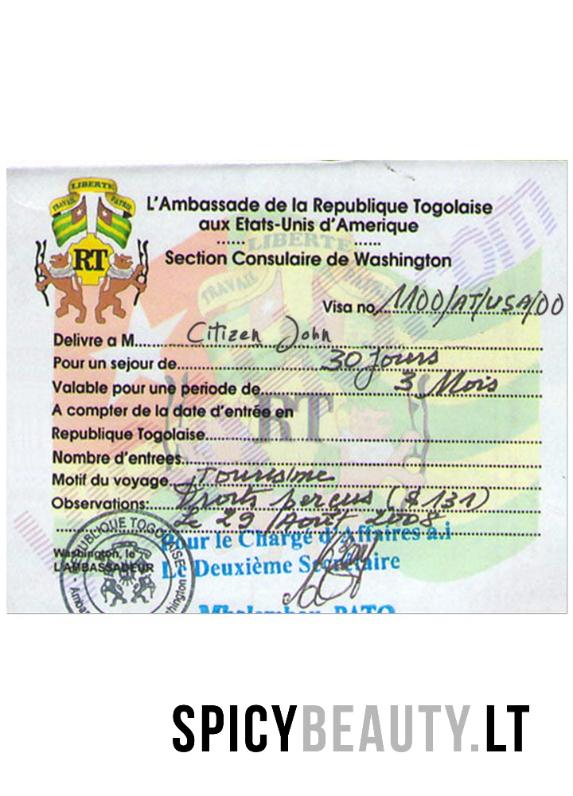 LIBERTE
TRAVAIL PATRIE
RT
L'Ambassade de la Republique Togolaise
aux Etats-Unis d'Amerique
Section Consulaire de Washington
LIBERTE
TRAVAIL
RT
Visa no. 1100/AT/USA/00
Delivre a M. Citizen John
Pour un sejour de 30 Jours
Valable pour une periode de 3 Mois
A compter de la date d'entrée en
Republique Togolaise
Nombre d'entrees
Motif du voyage Tourisme
Observations: Droits perçus ($131)
Le 29 Août 2008
Pour le Chargé d'Affaires a.i
Washington, le
L'AMBASSADEUR
Le Deuxième Secrétaire
REPUBLIQUE TOGOLAISE
Washington
PATO
SPICYBEAUTY.LT